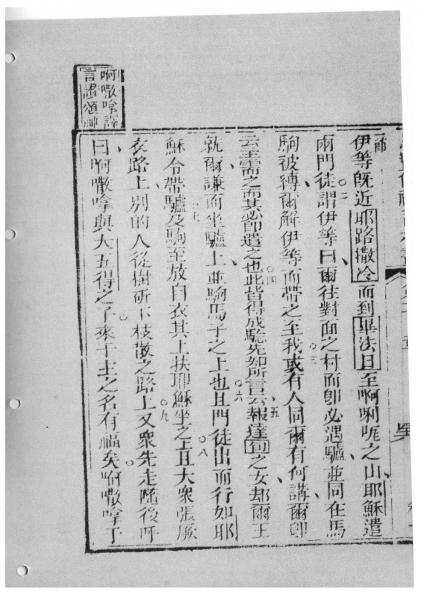 伊等既近耶路撒冷而到畢法日至啊唎吪之山耶穌遣
兩門徒謂伊等曰爾往對面之村而卽必遇驢並同在馬
駒被縛爾解伊等而帶之至我或有人問爾有何講爾卽
云主需之而其必卽遣之也此皆得成驗先知所言云報達旬之女却爾王
就爾謙而坐驢上並駒馬子之上也且門徒出而行如耶
穌令帶驢及駒至放自衣其上扶耶穌坐之且大衆張厥
衣路上別的人從樹斫下枝散之路上又衆先走隨後呼
曰啊嘞唅與大五得之子來于主之名有福矣啊嘞唅于
啊嘞唅譯
言讚頌